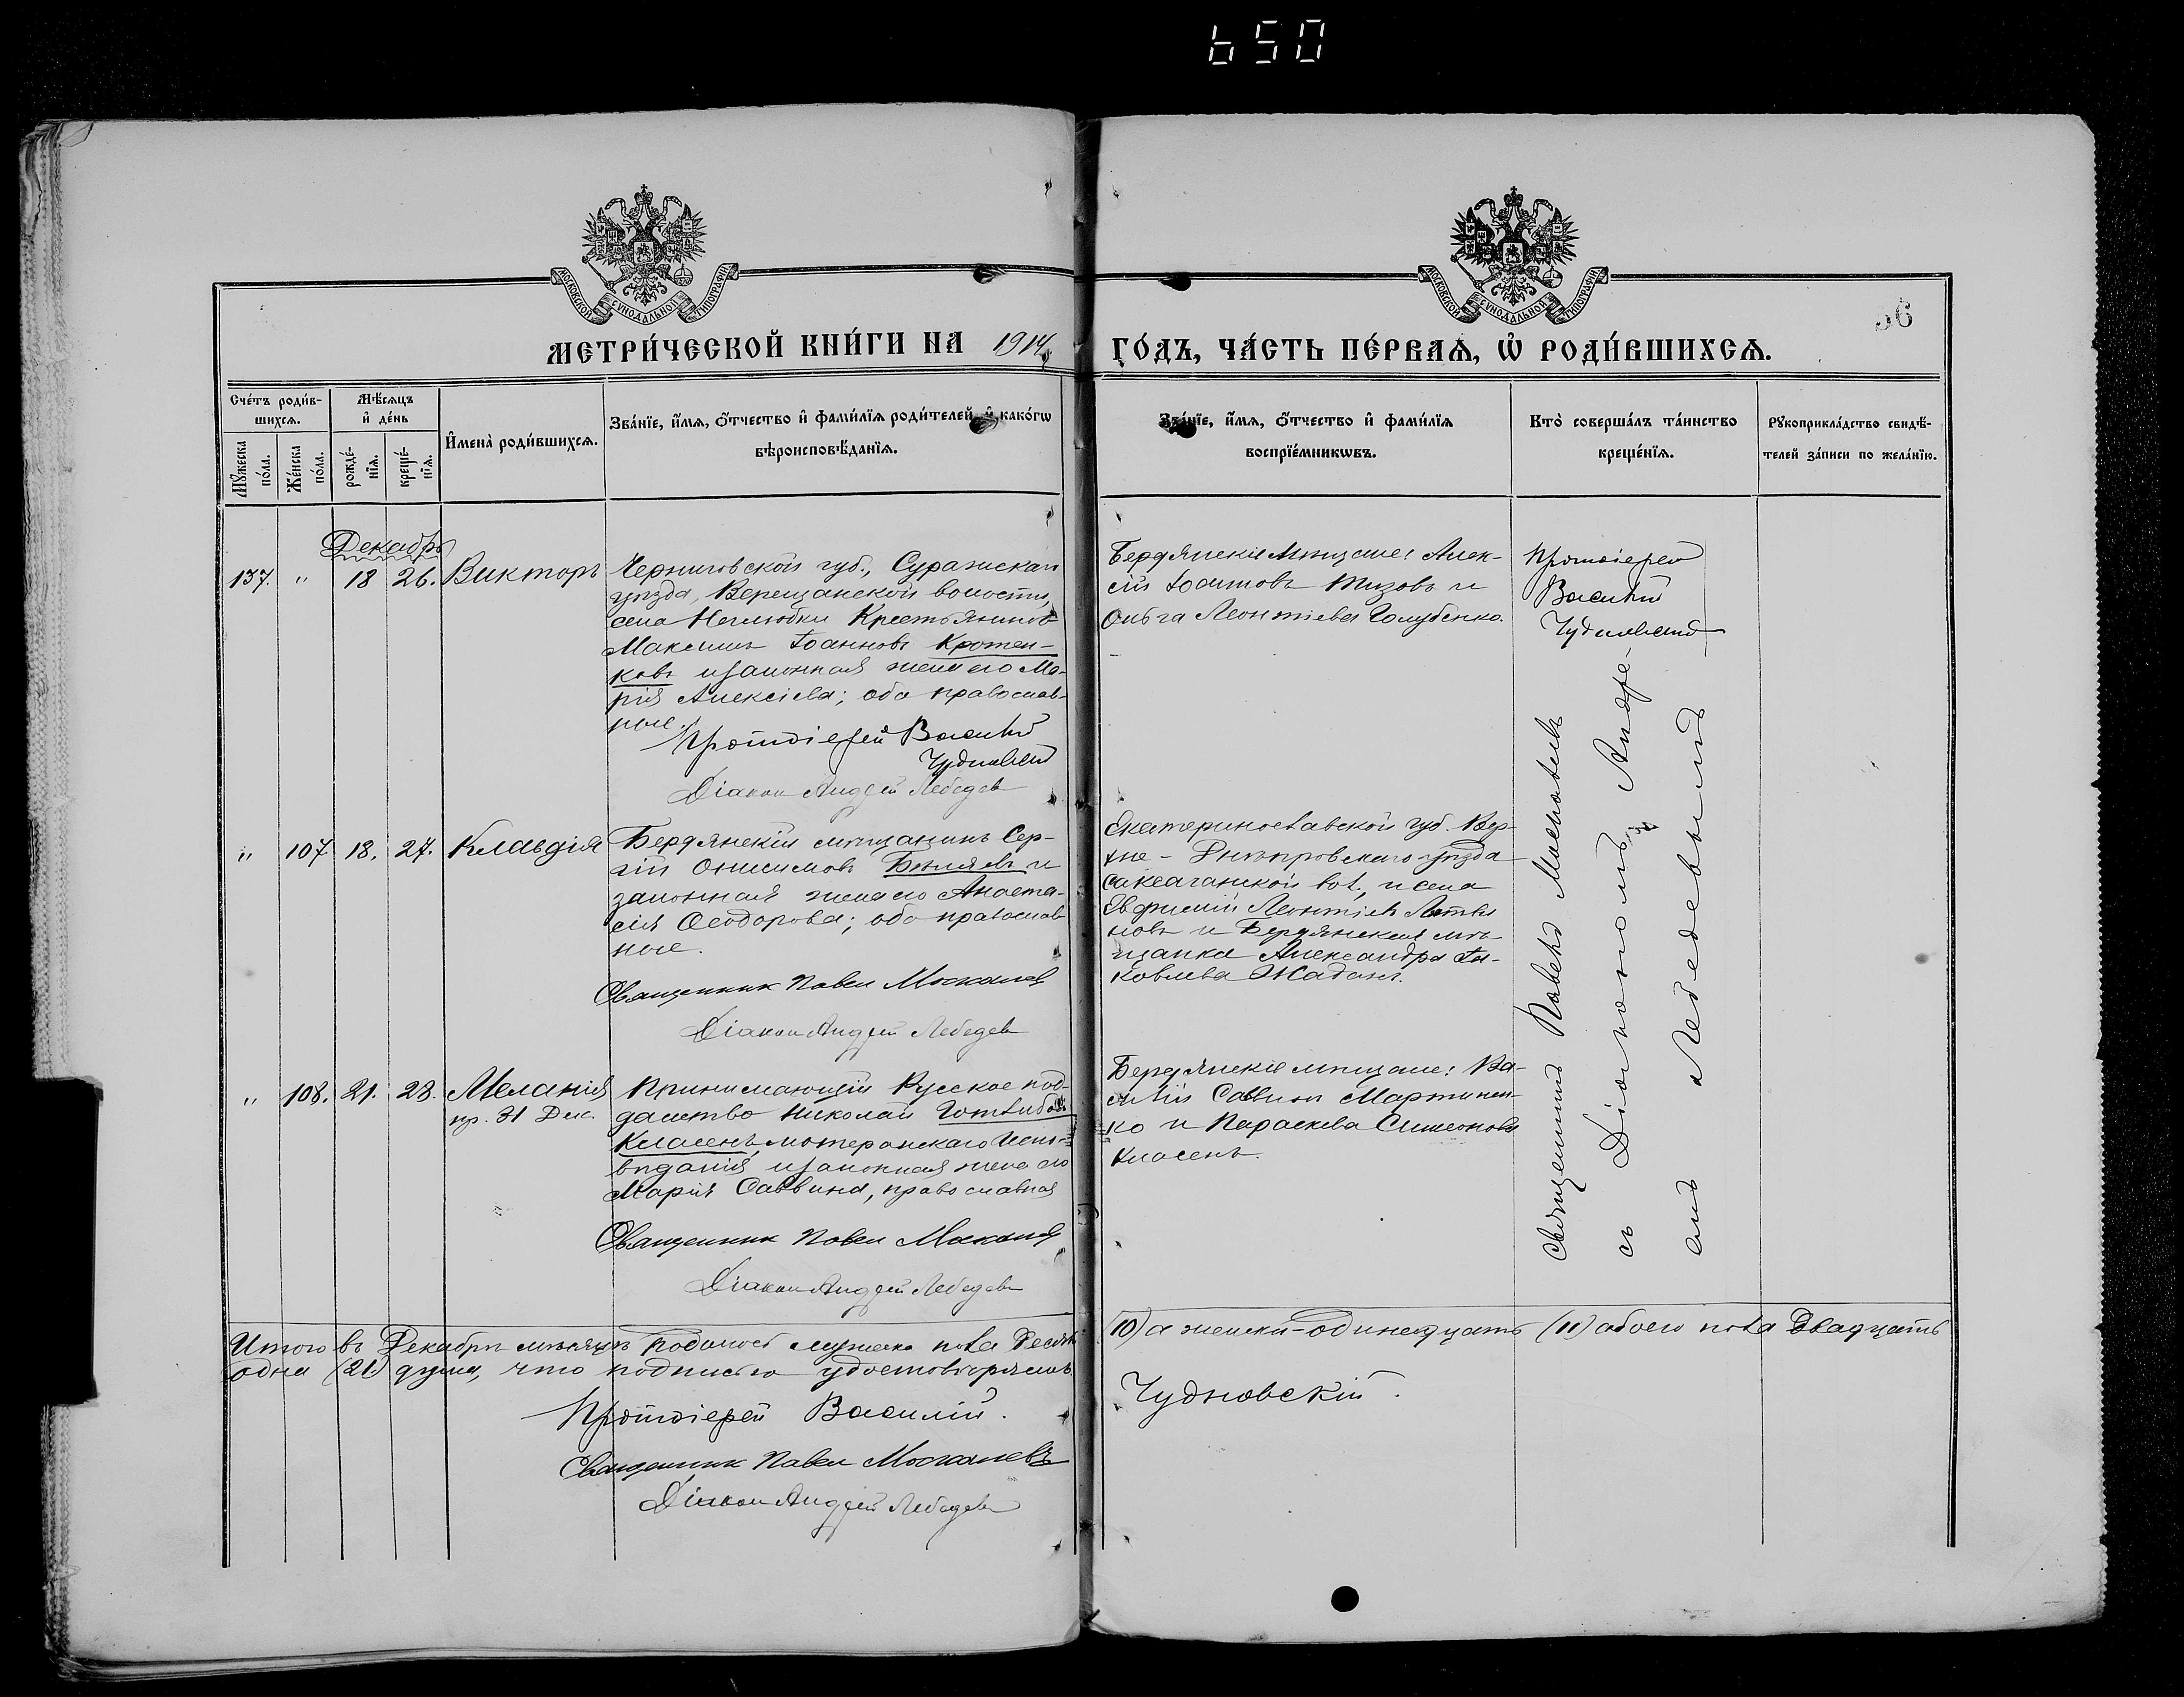 650
МОСКОВСКОЙ СѴНОДАЛЬНОЙ ТИПОГРАФІИ
МОСКОВСКОЙ СѴНОДАЛЬНОЙ ТИПОГРАФІИ
56
МЕТРИ́ЧЕСКОЙ КНИ́ГИ НА 1914 ГО́ДЪ, ЧА́СТЬ ПЕ́РВАѦ, Ѡ РОДИ́ВШИХСѦ.
Сче́тъ роди́в-
шихсѧ.
Мꙋжеска по́ла.
Же́нска по́ла.
Мѣ́сѧцъ
и҆ де́нь
рожде́-
нїѧ.
креще́-
нїѧ.
И҆мена̀ роди́вшихсѧ.
Зва́нїе, и҆́мѧ, ѻ҆́тчество и҆ фами́лїѧ роди́телей, и҆ како́гѡ
вѣроисповѣ́данїѧ.
Зва́нїе, и҆́мѧ, ѻ҆́тчество и҆ фами́лїѧ
воспрїе́мникѡвъ.
Кто̀ соверша́лъ та́инство
креще́нїѧ.
Рꙋкоприкла́дство свидѣ́-
телей за́писи по жела́нїю.
Декабрь
137. " 18 26. Викторъ
Черниговской губ., Суражскаго
уѣзда, Верещанской волости,
села Неглюбки Крестьянинъ
Максимъ Іоанновъ Кротен-
ковъ и законная жена его Ма-
рія Алексіева; оба православ-
ные.
Протоіерей Василій
Чудновскій
Діаконъ Андрей Лебедевъ
Бердянскіе мѣщане: Алек-
сій Іоанновъ Тизовъ и
Ольга Леонтіева Голубенко.
Протоіерей
Василій
Чудновскій
" 107 18. 27. Клавдія
Бердянскій мѣщанинъ Сер-
гій Онисимовъ Бѣляевъ и
законная жена его Анаста-
сія Ѳеодорова; оба православ-
ные.
Священникъ Павелъ Москалевъ
Діаконъ Андрей Лебедевъ
Екатеринославской губ. Вер-
хне-Днѣпровскаго уѣзда
Саксаганской вол. и села
Евфимій Леонтіевъ
новъ и Бердянская мѣ-
щанка Александра Іа-
ковлева Жаданъ.
" 108. 21. 28. Меланія
пр. 31 Дек.
Принимающій Русское под-
данство Николай Готлибовъ
Классенъ, лютеранскаго испо-
вѣданія и законная жена его
Марія Саввина, православная
Священникъ Павелъ Москалевъ
Діаконъ Андрей Лебедевъ
Бердянскіе мѣщане: Ва-
силій Саввинъ Мартинен-
ко и Параскева Симеонова
Классенъ.
Священникъ Павелъ Москалевъ
съ Діакономъ Андре-
емъ Лебедевымъ
Итого въ Декабрѣ мѣсяцѣ родилось мужска пола Десять (10) а женска-одиннадцать (11) обоего пола Двадцать
одна (21) душа, что подписью удостовѣряемъ
Протоіерей Василій Чудновскій.
Священникъ Павелъ Москалевъ
Діаконъ Андрей Лебедевъ